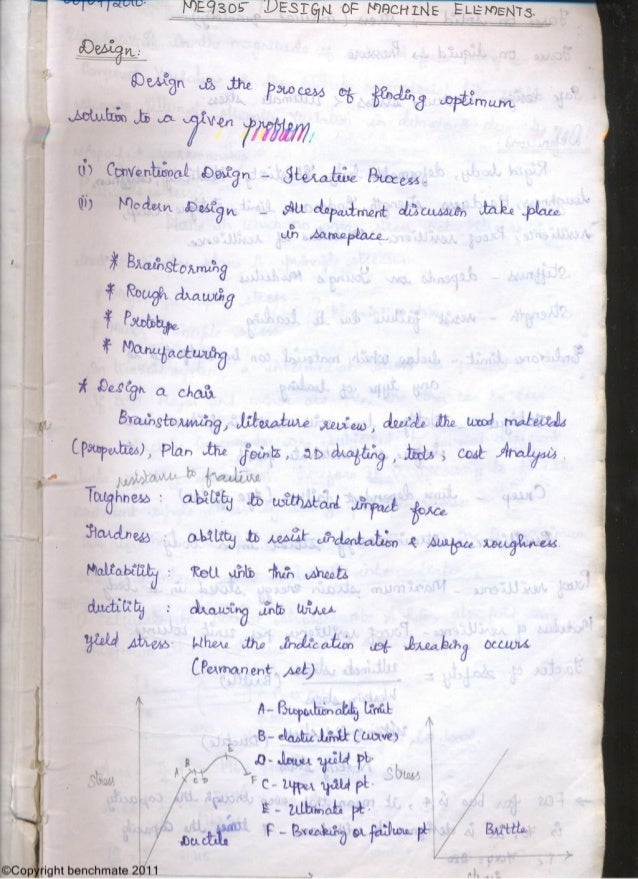 ME9305 DESIGN OF MACHINE ELEMENTS.
Design:
Design is the process of finding optimum
solution to a given problem.
(i) Conventional Design - Iterative Process.
(ii) Modern Design - All department discussion take place
in sameplace.
* Brainstorming
* Rough drawing
* Prototype
* Manufacturing
* Design a chair
Brainstorming, literature review, decide the wood materials
(properties), Plan the joints, 2D drafting, tools, cost Analysis.
resistance to fracture
Toughness : ability to withstand impact force
Hardness : ability to resist indentation & surface roughness.
Maliability : Roll into thin sheets
ductility : drawing into wires
Yield stress Where the indication of breaking occurs
(Permanent set)
A - Proportionality limit
B - elastic limit (curve)
D - lower yield pt.
C - Upper yield pt.
E - Ultimate pt.
F - Breaking or failure pt
Stress
A
B
C
D
E
F
Ductile
Stress
Brittle
©Copyright benchmate 2011